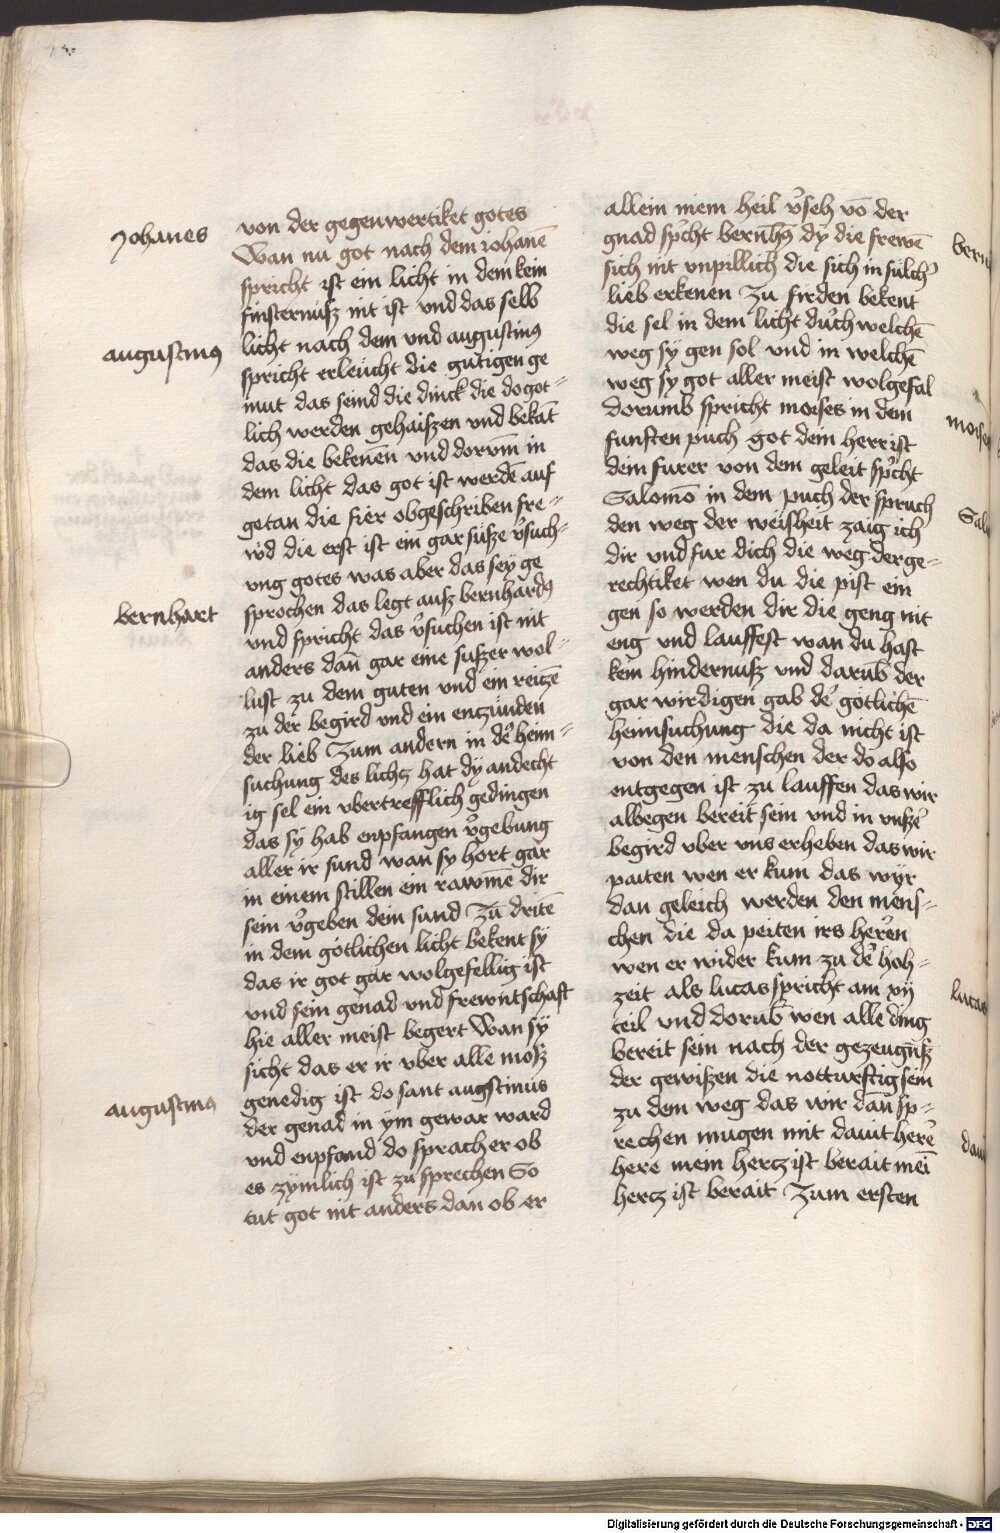 Johanes
von der gegenwertiket gotes
Wan nu got nach dem iohanē
spricht ist ein licht in dem kein
finsternusz nit ist vnd das selb
augustinus
licht nach dem vnd augustinus
spricht erleucht die gutigen ge
mut das seind die dinck die do got=
lich werden gehaiszen vnd bekāt
das die bekenen vnd dorvm̄ in
dem licht das got ist werdē auf
getan die fier obgeschriben fre=
wd die erst ist ein gar susze v̓such=
vng gotes was aber das sey ge
bernhart
sprochen das legt ausz bernhardus
vnd spricht das v̓suchen ist nit
anders dan̄ gar eine suszer wol=
lust zu dem guten vnd ein reiczē
zu der begird vnd ein enczunden
der lieb Zum andern in de̓ heim=
suchung des lichcz hat dy andecht
ig sel ein vbertrefflich gedingen
das sy hab enpfangen v̓gebung
aller ir sund wan sy hort gar
in einem stillen ein rawmē dir
sein v̓geben dein sund Zū dritē
in dem gotlichen licht bekent sy
das ir got gar wolgefellig ist
vnd sein genad vnd frewntschaft
hie aller meist begert Wan sy
sicht das er ir vber alle mosz
augustinus
genedig ist do sant augstinus
der genad in ym gewar ward
vnd enpfand do sprach er ob
es zymlich ist zu sprechen So
tut got nit anders dan ob er
allein mein heil v̓seh vō der
bern
gnad sp̓cht bernh̄9 dy die frewē
sich nit vnpillich die sich in sulch̓
lieb erkenen Zu firden bekent
die sel in dem licht du̓ch welchē
weg sy gen sol vnd in welchē
weg sy got aller meist wolgefal
moises
dorumb spricht moises in dem
funften puch got dein herr ist
dein furer von dem geleit sp̓cht
Sal
Salomō in dem puch der spruch
den weg der weisheit zaig ich
dir vnd fur dich die weg der ge=
rechtiket wen du die pist ein
gen so werden dir die geng nit
eng vnd lauffest wan du hast
kein hindernusz vnd darub̄ der
gar wirdigen gab de̓ gotlichē
heimsuchung die da nicht ist
von den menschen der do also
entgegen ist zu lauffen das wir
albegen bereit sein vnd in vnsze̓
begird vber vns erheben das wir
paiten wen er kum das wyr
dan geleich werden den mens=
chen die da peiten irs her̓en
wen er wider kum zu de̓ hoh=
lucas
zeit als lucas spricht am xij
teil vnd dorub̄ wen alle ding
bereit sein nach der gezeugnusz
der gewiszen die notturftig sein
zu dem weg das wir dan̄ sp=
daui
rechen mugen mit dauit herē
here mein hercz ist berait mei̅
hercz ist berait Zum ersten
Digitalisierung gefördert durch die Deutsche Forschungsgemeinschaft - DFG